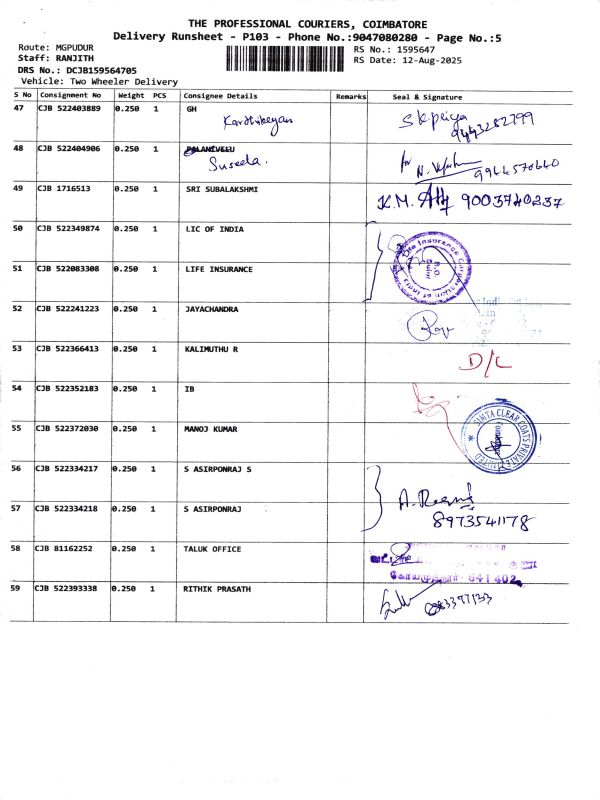 THE PROFESSIONAL COURIERS, COIMBATORE
Delivery Runsheet - P103 - Phone No.:9047080280 - Page No.:5
Route: MGPUDUR
RS No.: 1595647
Staff: RANJITH
RS Date: 12-Aug-2025
DRS No.: DCJB159564705
Vehicle: Two Wheeler Delivery
S No Consignment No Weight PCS Consignee Details Remarks Seal & Signature
47 CJB 522403889 0.250 1 GH
Karthikeyan
SKpriya
9443282799
48 CJB 522404906 0.250 1 PALANIVELU
Suseela.
for N.
9944570640
49 CJB 1716513 0.250 1 SRI SUBALAKSHMI
K.M. 9003740237
50 CJB 522349874 0.250 1 LIC OF INDIA
Life Insurance Corporation of India
B.O.
51 CJB 522083308 0.250 1 LIFE INSURANCE
52 CJB 522241223 0.250 1 JAYACHANDRA
53 CJB 522366413 0.250 1 KALIMUTHU R
D/L
54 CJB 522352183 0.250 1 IB
SIMTA CLEAR COATS PRIVATE LIMITED
55 CJB 522372030 0.250 1 MANOJ KUMAR
56 CJB 522334217 0.250 1 S ASIRPONRAJ S
57 CJB 522334218 0.250 1 S ASIRPONRAJ
8973541178
58 CJB 81162252 0.250 1 TALUK OFFICE
கோயமுத்தூர் 641 402
59 CJB 522393338 0.250 1 RITHIK PRASATH